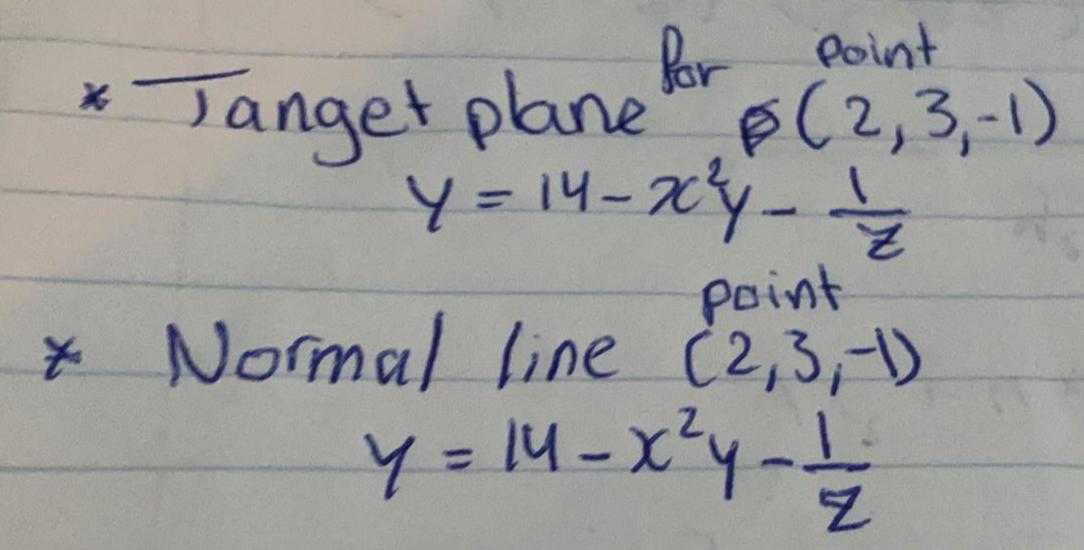 * Tanget plane for point (2, 3, -1)
y = 14 - x²y - 1/z
* Normal line point (2, 3, -1)
y = 14 - x²y - 1/z